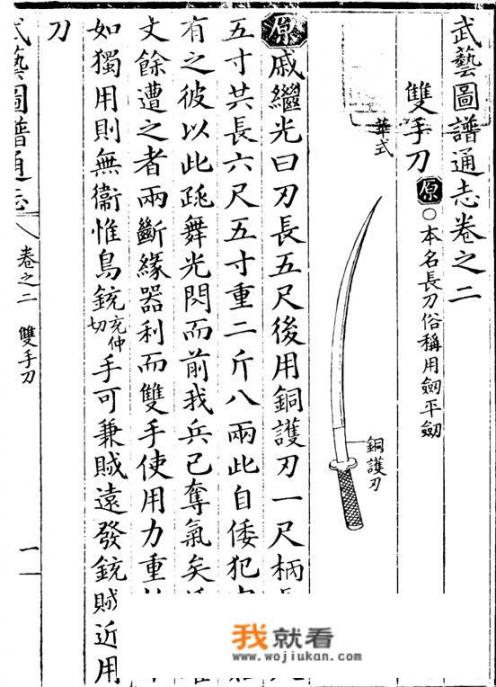 武藝圖譜通志卷之二
雙手刀 原 ○本名長刀俗稱用劒平劒
華式
銅護刃
原 戚繼光曰刀長五尺後用銅護刃一尺柄
五寸共長六尺五寸重二斤八兩此自倭犯
有之彼以此跳舞光閃而前我兵已奪氣矣
丈餘遭之者兩斷緣器利而雙手使用力重
如獨用則無衞惟鳥銃充仲切手可兼賊遠發銃賊近用
刀
武藝圖譜通志 卷之二 雙手刀 一
我就看
www.wojiukan.com